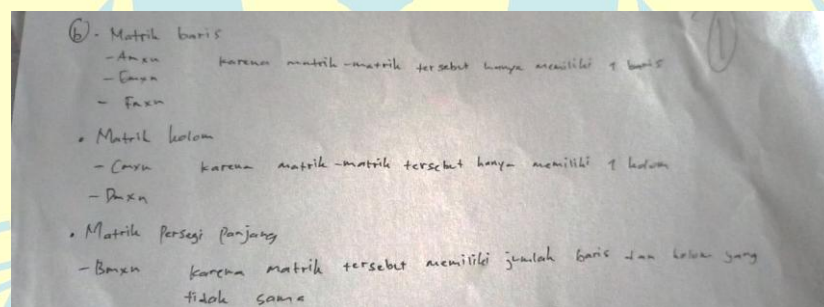 (b). Matrik baris
- Amxn karena matrik-matrik tersebut hanya memiliki 1 baris
- Emxn
- Fmxn
• Matrik kolom
- Cmxn karena matrik-matrik tersebut hanya memiliki 1 kolom
- Dmxn
• Matrik Persegi Panjang
- Bmxn karena matrik tersebut memiliki jumlah baris dan kolom yang
tidak sama